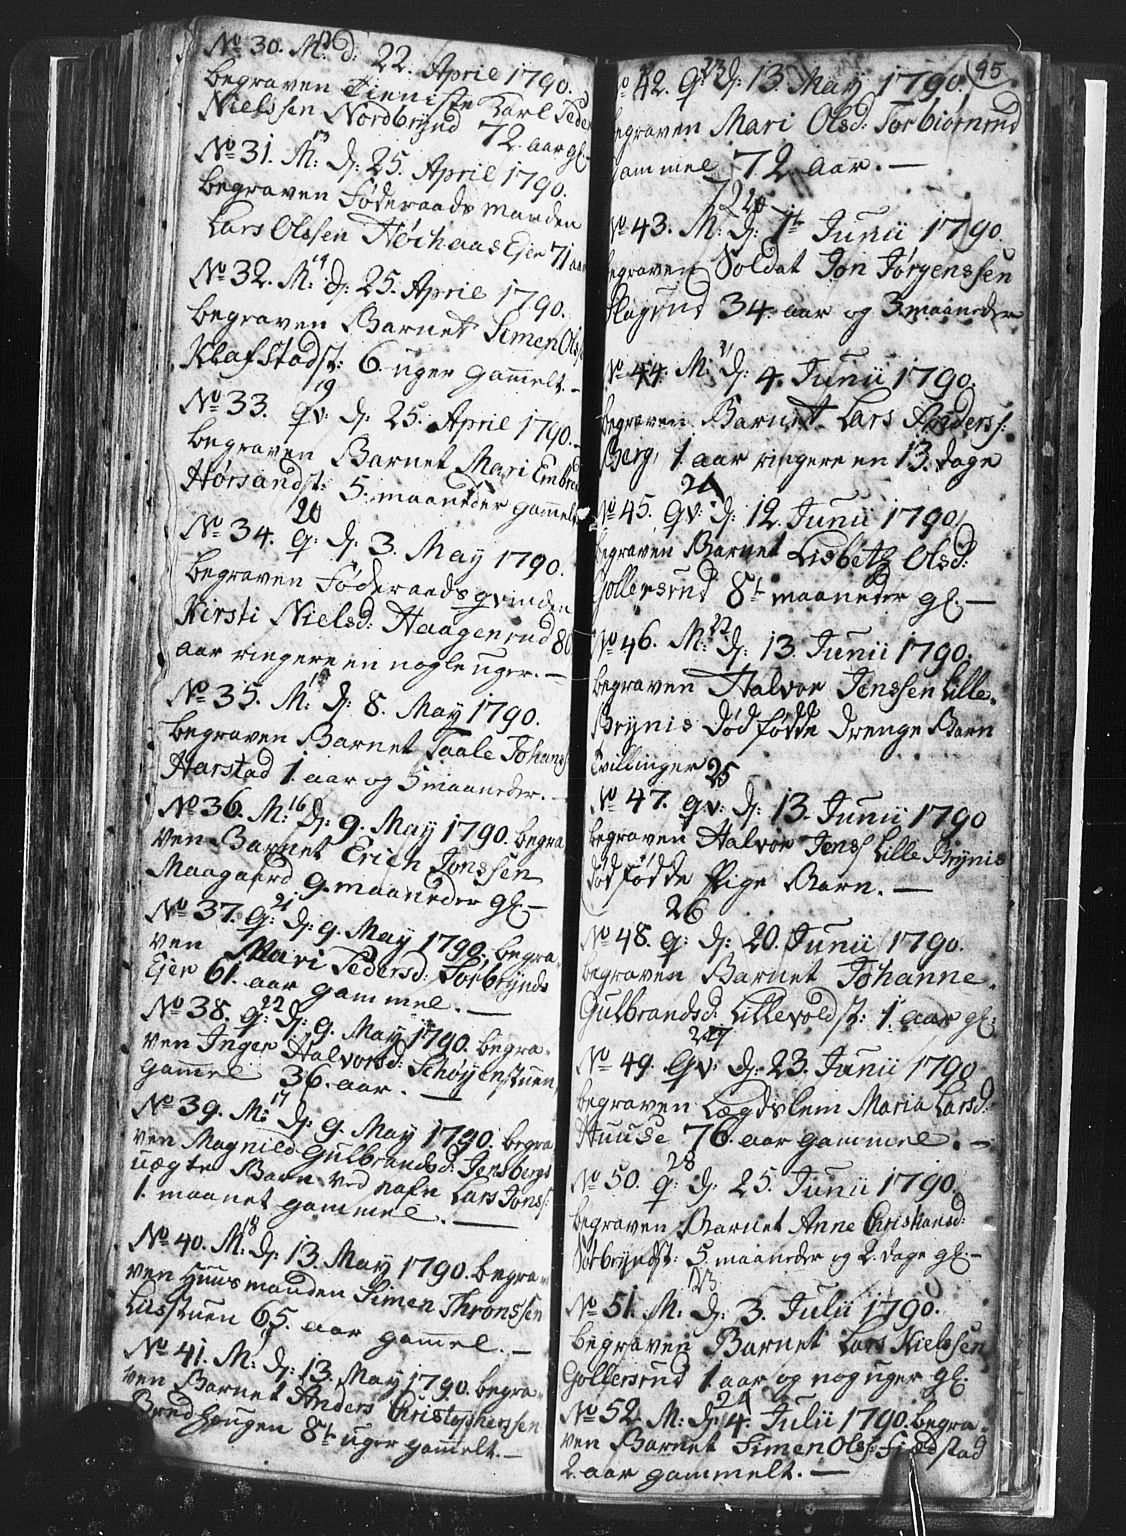 No 30. M: d: 22. April 1790.
begraven Tieniste Karl Peder
Nielssen Nordbrÿnd 72. aar gl.
13
No 31. M: d: 25. April 1790.
begraven Føderaads manden
Lars Olssen Ejer 71 aar
14
No 32. M: d: 25. April 1790.
begraven Barnet Simen Ols
Klafstadst: 6. uger gam̄elt. –
19
No 33. qv: d: 25. April 1790. –
begraven Barnet Mari Embre
Hørsandst: 5. maaneder gam̄elt
20
No 34. q: d: 3. May 1790.
begraven Føderaads qvinden
Kirsti Nielsd: Haagenrud 80
aar ringere en nogle uger. –
No 35. M: d: 8. May 1790.
begraven Barnet Paale Johans
Harstad 1. aar og 5 maaneder. –
16
No 36. M: d: 9. May 1790. begra
ven Barnet Erich Jonssen
Maagaard 9. maaneder gl. –
21
No 37. q: d: 9. May 1790. begra-
ven Mari Pedersd: Torbrÿnds
Ejer 61. aar gammel. –
22
No 38. q: d: 9. May 1790. begra-
ven Inger Halvorsd: Schoÿenstuen
gam̄el 36. aar. –
17
No 39. M: d: 9. May 1790. begra
ven Magnild Gulbrandsd: Jensbergs
uægte Barn ved nafn Lars Jonss:
1. maanet gammel. –
18
No 40. M: d: 13. May 1790. begra-
ven Huusmanden Simen Thronssen
Liisstuen 65. aar gam̄el. –
No 41. M: d: 13. May 1790. begra-
ven Barnet Anders Christophersen
Bredhougen 8te uger gam̄elt. –
95
23
No 42. q: d: 13. May 1790.
begraven Mari Olsd: Torbiørnrud
gammel 72 aar. –
20
No 43. M: d: 1te Junii 1790.
begraven Soldat Jon Jørgenssen
Slagrud 34. aar og 3 maaneder
21
No 44. M: d: 4. Junii 1790.
begraven Barnet Lars Anderss:
Berg, 1 aar ringere en 13. dage
24
No 45. qv: d: 12. Junii 1790
begraven Barnet Lisbeth Olsd:
Gollersrud 8te maaneder gl. –
22
No 46. M: d: 13. Junii 1790.
begraven Halvor Jenssen Lille-
Brÿnis dødfødde Drenge Barn
Tvillinger
25
No 47. qv: d: 13. Junii 1790
begraven Halvor Jenss Lille Brÿnis
dødfødde Pige Barn. –
26
No 48. q: d: 20. Junii 1790.
begraven Barnet Johanne
Gulbrandsd: Lillevoldst: 1. aar gl:
27
No 49. qv: d: 23. Junii 1790
begraven Lægdslem Maria Larsd:
Huuse 76. aar gammel. –
28
No 50. q: d: 25. Junii 1790.
begraven Barnet Anne Christiansd:
Torbrÿndst: 5. maaneder og 2. dage gl. –
23.
No 51. M: d: 3. Julii 1790.
begraven Barnet Lars Nielssen
Gollersrud 1 aar og nog uger gl.
24
No 52. M: d: 4. Julii 1790. begra-
ven Barnet Simen Olss: Fiedstad
2. aar gammelt. –